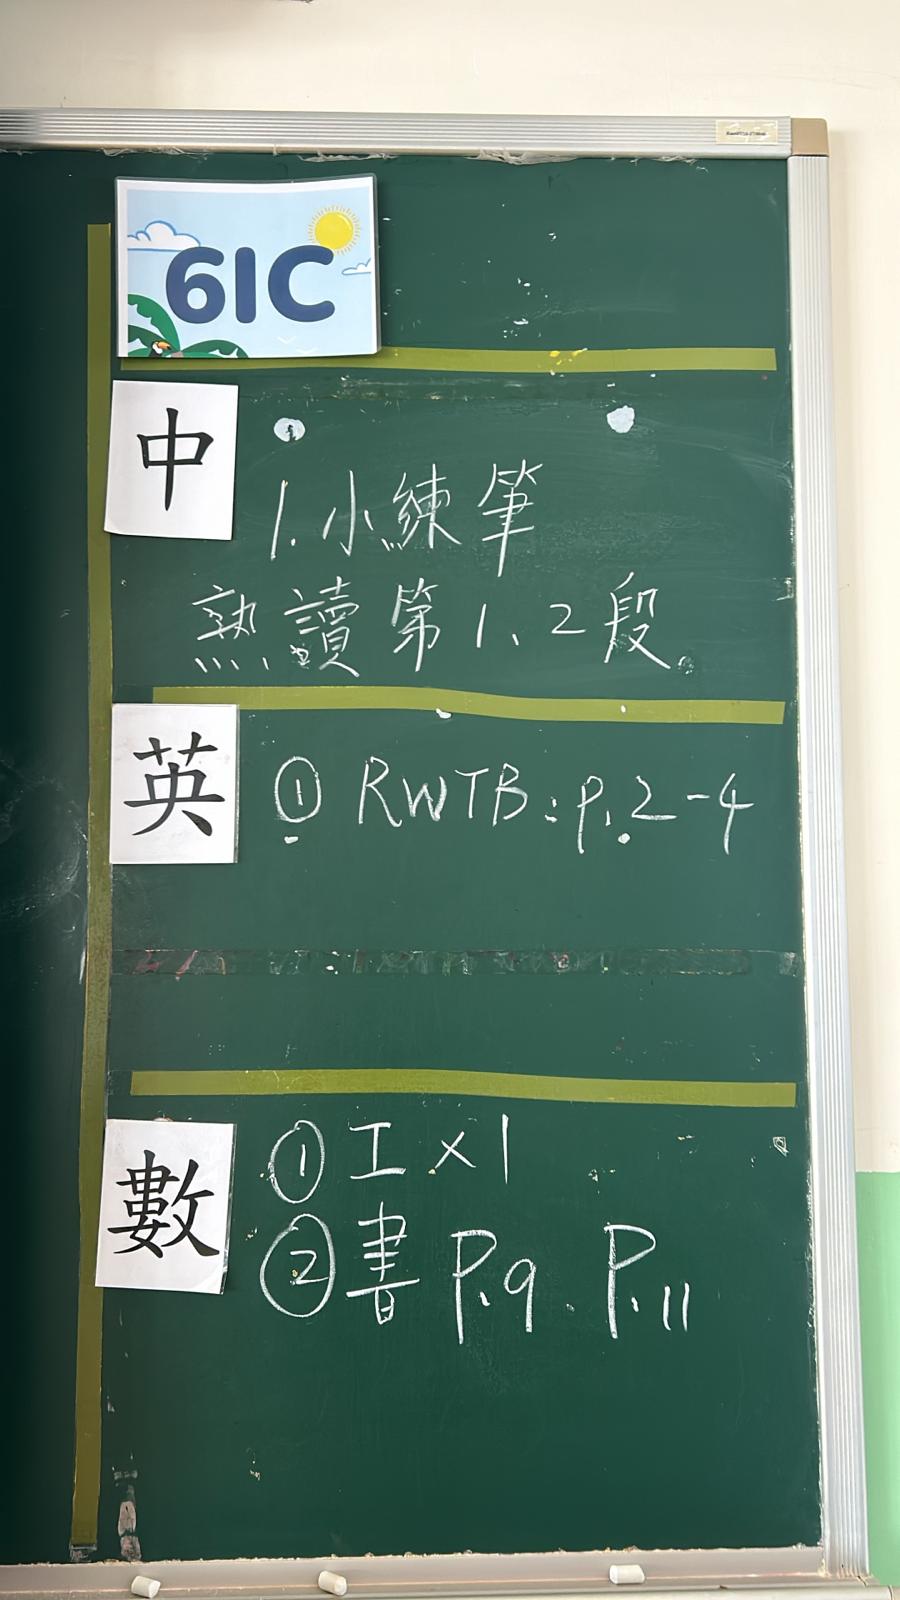 61C
中
1.小練筆
熟讀第1、2段。
英
① RWTB:p.2-4
數
① 工×1
② 書 P.9、P.11